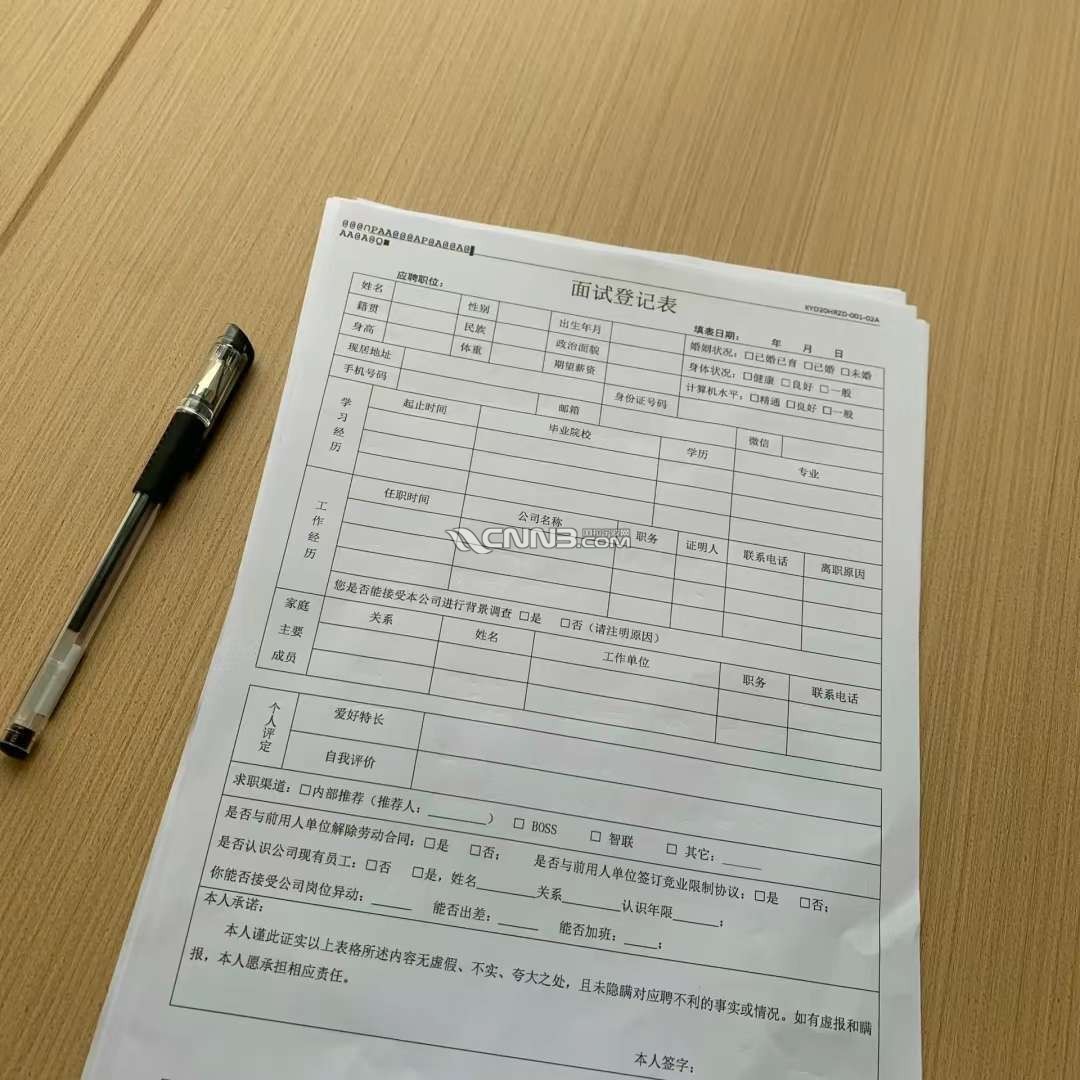 @@@∩PAA@@@AP@A@@A@
AA@A@Q■
面试登记表
KYD20HRZD-001-02A
应聘职位：
填表日期： 年 月 日
姓名 性别 出生年月 婚姻状况：□已婚已育 □已婚 □未婚
籍贯 民族 政治面貌 身体状况：□健康 □良好 □一般
身高 体重 期望薪资 计算机水平：□精通 □良好 □一般
现居地址 身份证号码
手机号码 邮箱 微信
学习经历 起止时间 毕业院校 学历 专业
工作经历 任职时间 公司名称 职务 证明人 联系电话 离职原因
您是否能接受本公司进行背景调查 □是 □否（请注明原因）
家庭主要成员 关系 姓名 工作单位 职务 联系电话
个人评定 爱好特长
自我评价
求职渠道：□内部推荐（推荐人：________） □ BOSS □ 智联 □ 其它：_____
是否与前用人单位解除劳动合同：□是 □否； 是否与前用人单位签订竞业限制协议：□是 □否；
是否认识公司现有员工：□否 □是，姓名_______关系_______认识年限______；
你能否接受公司岗位异动：_____ 能否出差：_____ 能否加班：____；
本人承诺：
本人谨此证实以上表格所述内容无虚假、不实、夸大之处，且未隐瞒对应聘不利的事实或情况。如有虚报和瞒
报，本人愿承担相应责任。
本人签字：
CNN3.COM